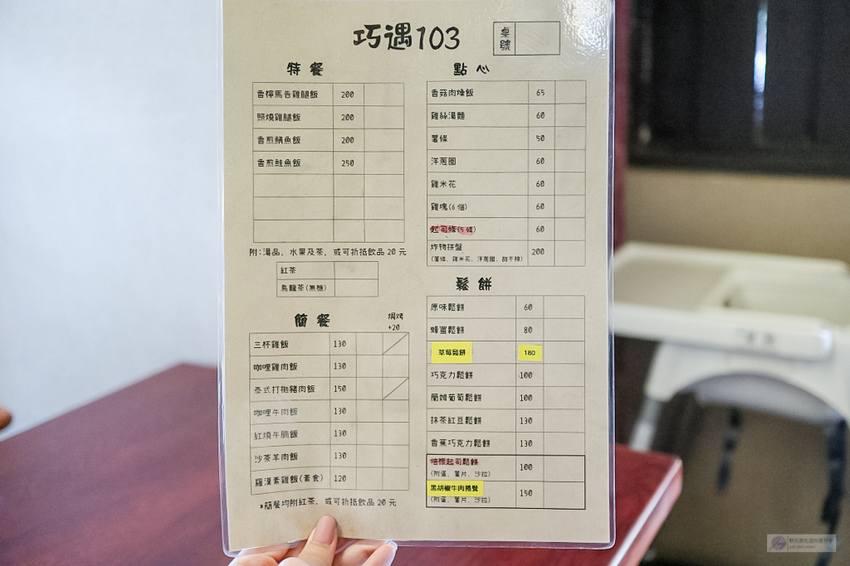 巧遇103
桌號
特餐
香檸馬告雞腿飯 200
照燒雞腿飯 200
香煎鯖魚飯 200
香煎鮭魚飯 250
附:湯品、水果及茶，或可折抵飲品20元
紅茶
烏龍茶(無糖)
簡餐
焗烤+20
三杯雞飯 130
咖哩雞肉飯 130
泰式打拋豬肉飯 150
咖哩牛肉飯 130
紅燒牛腩飯 130
沙茶羊肉飯 130
羅漢素雞飯(素食) 120
*簡餐均附紅茶，或可折抵飲品20元
點心
香菇肉燥飯 65
雞絲湯麵 60
薯條 50
洋蔥圈 60
雞米花 60
雞塊(6個) 60
起司條(5條) 60
炸物拼盤 200
(薯條、雞米花、洋蔥圈、甜不辣)
鬆餅
原味鬆餅 60
蜂蜜鬆餅 80
草莓鬆餅 180
巧克力鬆餅 100
藍姆葡萄鬆餅 100
抹茶紅豆鬆餅 130
香蕉巧克力鬆餅 130
培根起司鬆餅 100
(附蛋、薯片、沙拉)
黑胡椒牛肉捲餐 150
(附蛋、薯片、沙拉)